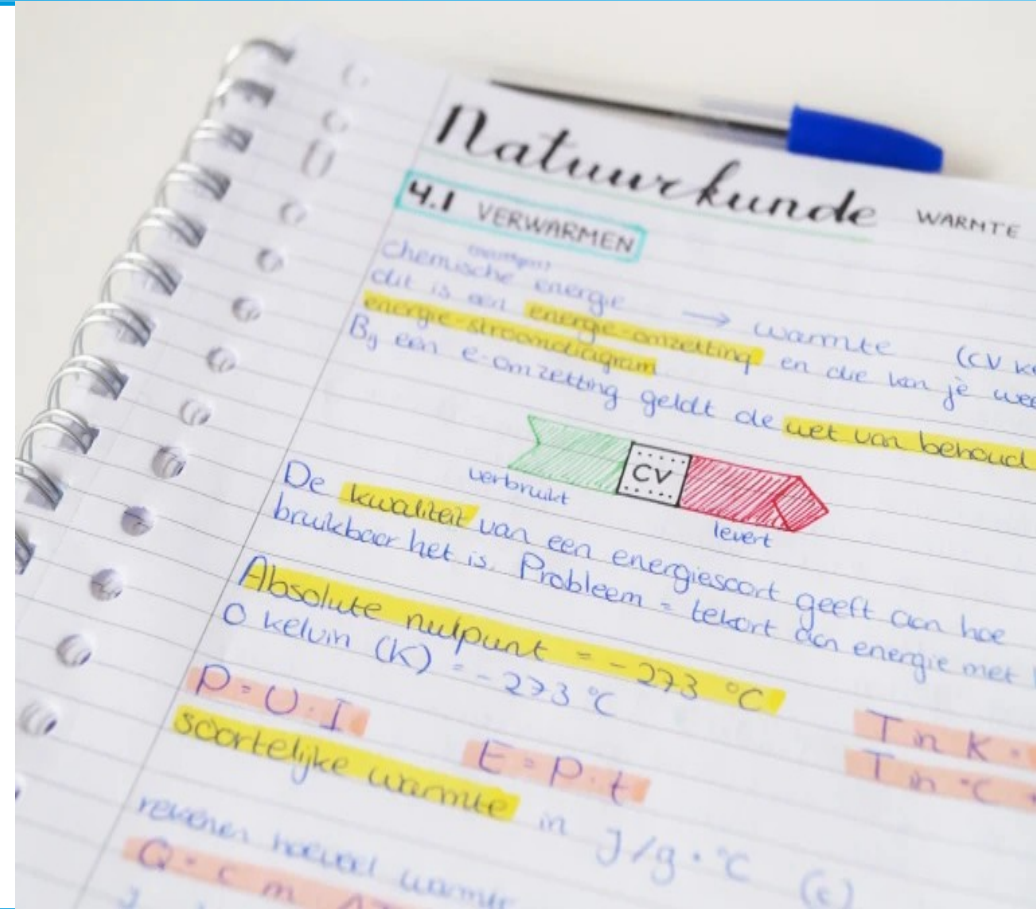 Natuurkunde WARMTE
4.1 VERWARMEN
chemische energie → warmte (CV
dit is een energie-omzetting en die kan je
energie-stroomdiagram
Bij een e-omzetting geldt de wet van behoud
CV
verbruikt
levert
De kwaliteit van een energiesoort geeft aan hoe
bruikbaar het is. Probleem = tekort aan energie met
Absolute nulpunt = -273 °C
0 kelvin (K) = -273 °C
P = U · I
E = P · t
T in K =
T in °C
soortelijke warmte in J/g · °C (c)
rekenen hoeveel warmte
Q = c m